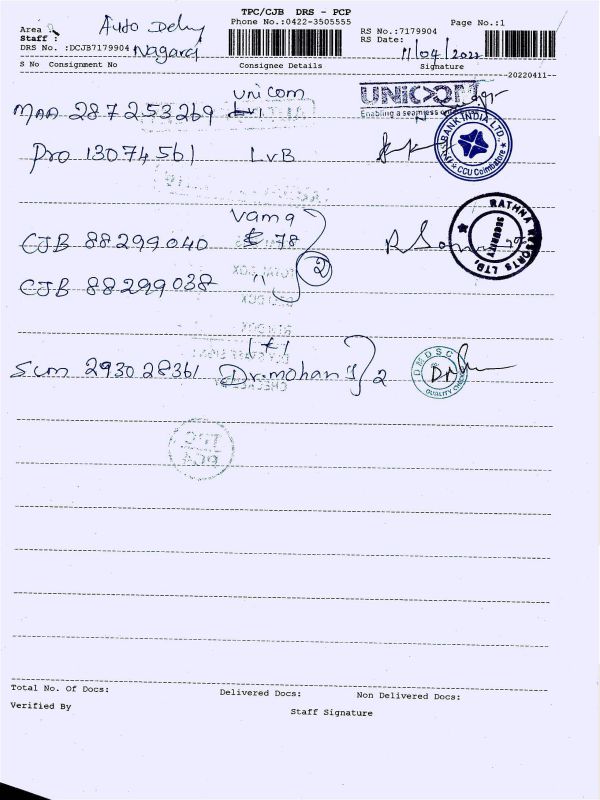 TPC/CJB DRS - PCP
Area : Auto Delvy Phone No.:0422-3505555 RS No.:7179904 Page No.:1
Staff : Nagaraj RS Date: 11/04/2022
DRS No. :DCJB7179904
S No Consignment No Consignee Details Signature
--20220411--
MAA 287253269 Unicom UNICOM
Enabling a seamless
Pro 13074561 LVB BANK INDIA LTD. CCU Coimbatore
CJB 88299040 78 RATHNA RESORTS LTD. SECURITY
CJB 88299038 " 2
1+1
SCM 293028361 Dr.mohan's 2 DMDSC QUALITY CHECK
Total No. Of Docs: Delivered Docs: Non Delivered Docs:
Verified By Staff Signature